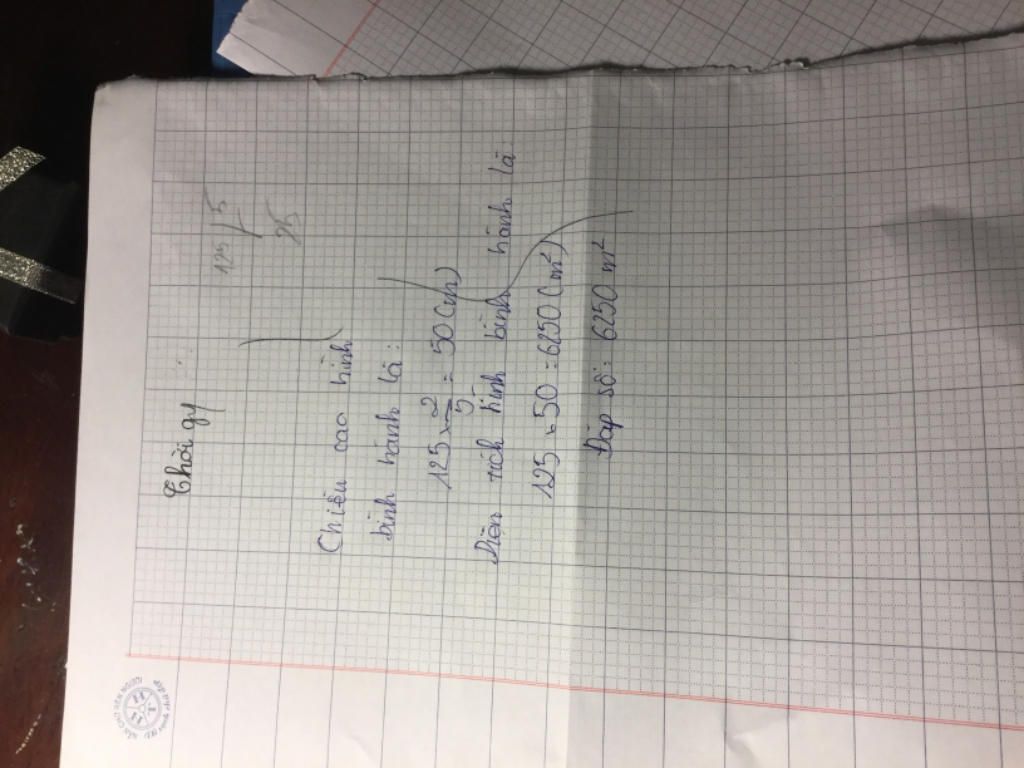 125 5
25
Chiều cao hình
bình hành là:
125 x 2/5 = 50 (m)
Diện tích hình bình hành là:
125 x 50 = 6250 (m²)
Đáp số: 6250 m²